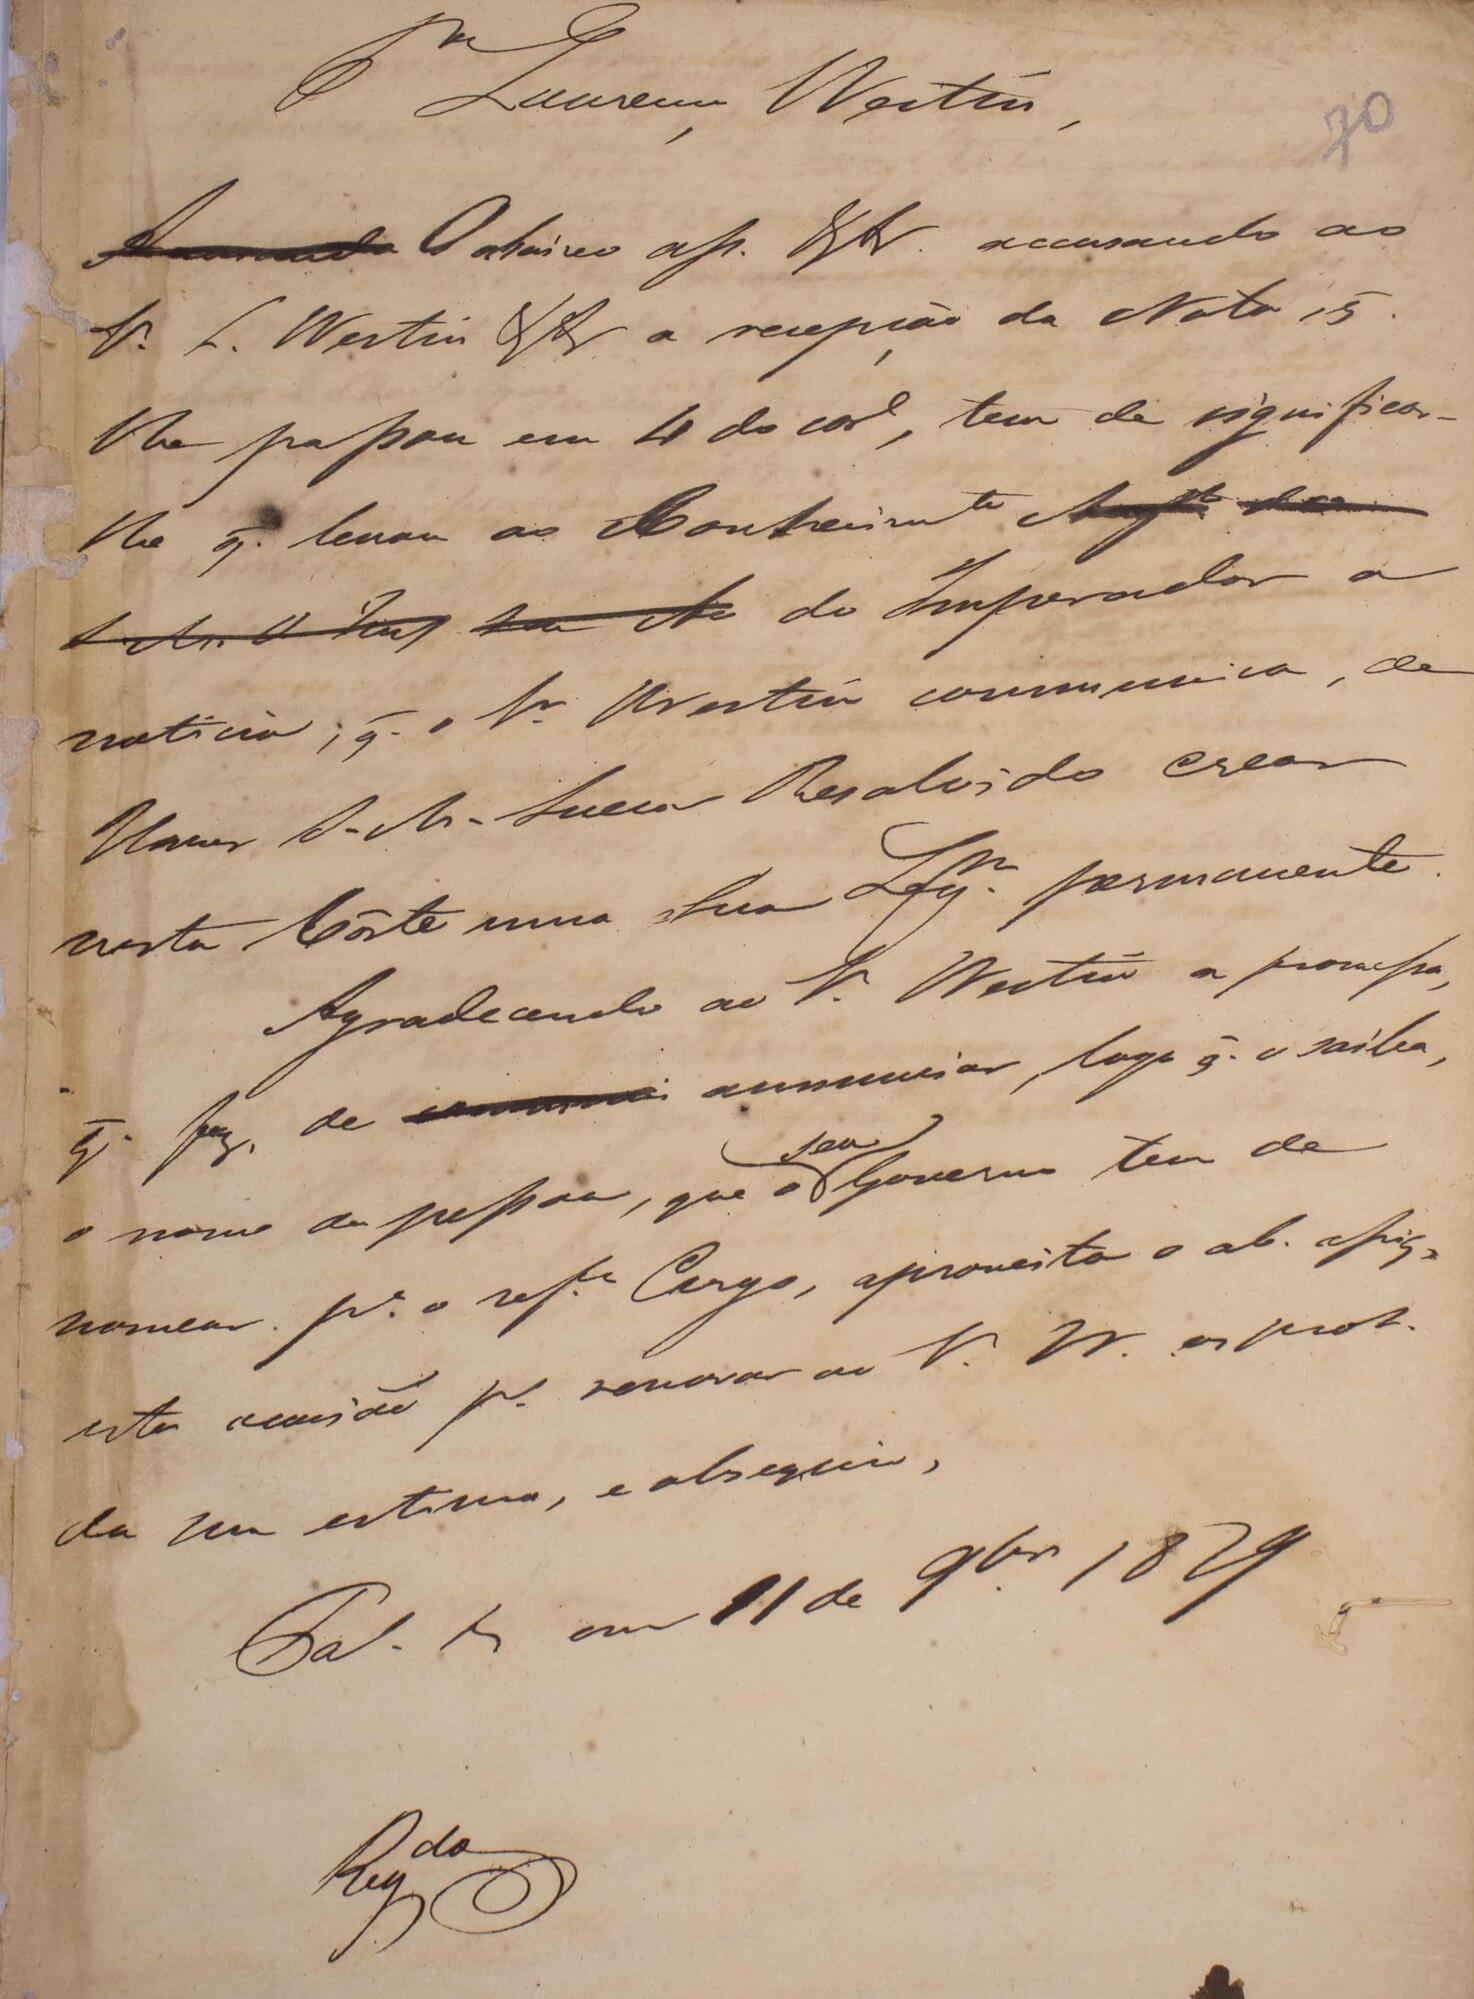 Pa Lourenço Westin,
70
O abaixo asp. &&. accusando ao
Sr. L. Westin && a recepção da Nota, q̃.
lhe passou em 4 do corre, tem de significar-
lhe q̃. levou ao Conhecimto
do Imperador a
noticia, q̃. o Sr. Westin communica, de
Haver S. M. Sueca Resolvido crear
nesta Côrte uma Sua Legm. permanente.
Agradecendo ao Sr. Westin a promessa,
q̃. faz, de annunciar, logo q̃. o saiba,
o nome da pessoa, que o seu Governo tem de
nomear pa. o refo. Cargo, aproveita o ab. assig.
esta occasião pa. renovar ao Sr. W. os prot.
da sua estima, e obsequio,
Pal. em 11 de 9bro 1829
Regda